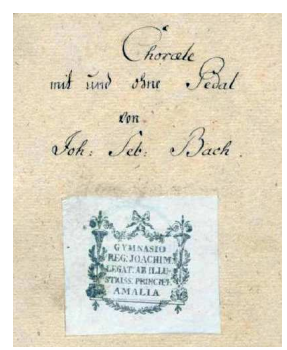 Choræle
mit und ohne Pedal
von
Joh: Seb: Bach.
GYMNASIO
REG: JOACHIM:
LEGAT: AB ILLU-
STRISS: PRINCIPE
AMALIA